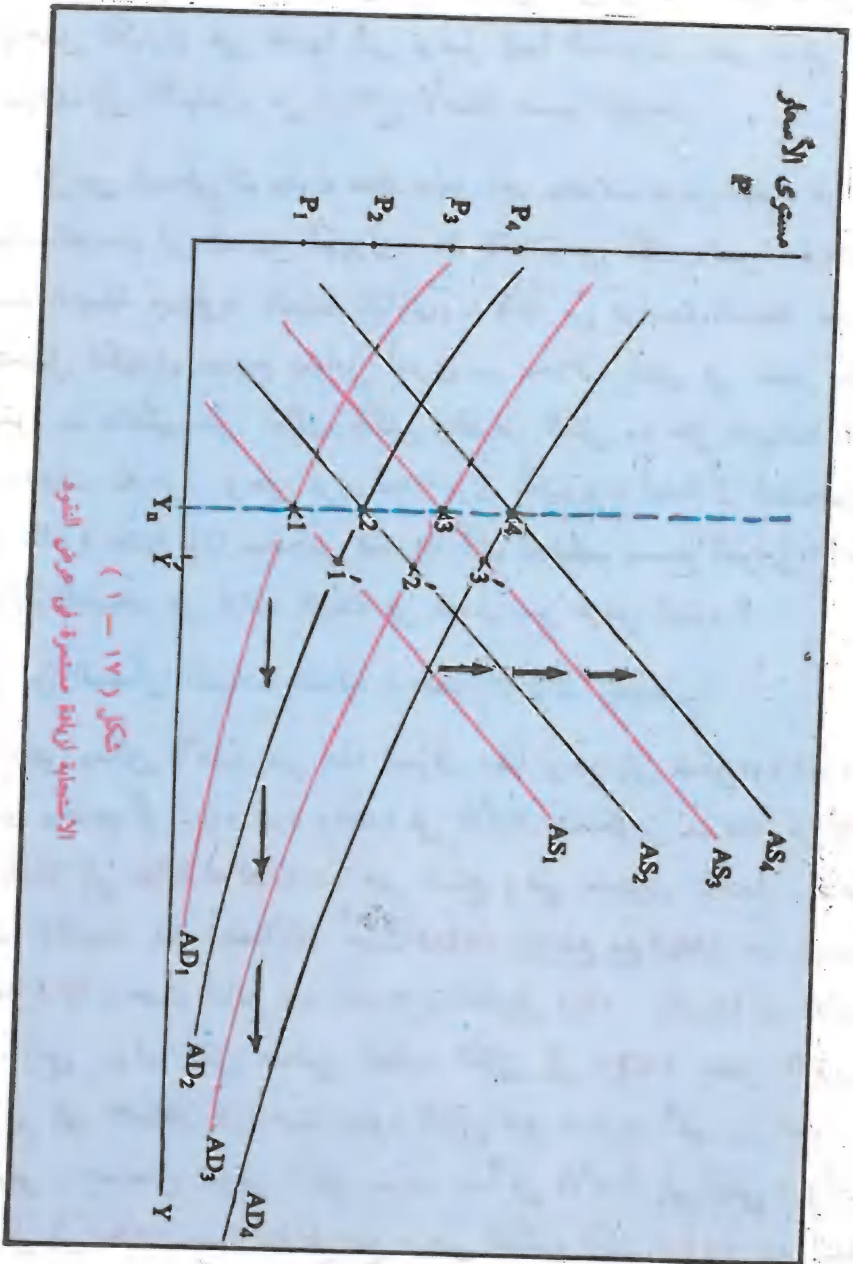 مستوى الأسعار
P
P4
P3
P2
P1
AS4
AS3
AS2
AS1
4
3
2
1
3′
2′
1′
AD1
AD2
AD3
AD4
Yn
Y′
Y
شكل (١٧ — ١)
الاستجابة لزيادة مستمرة في عرض النقود